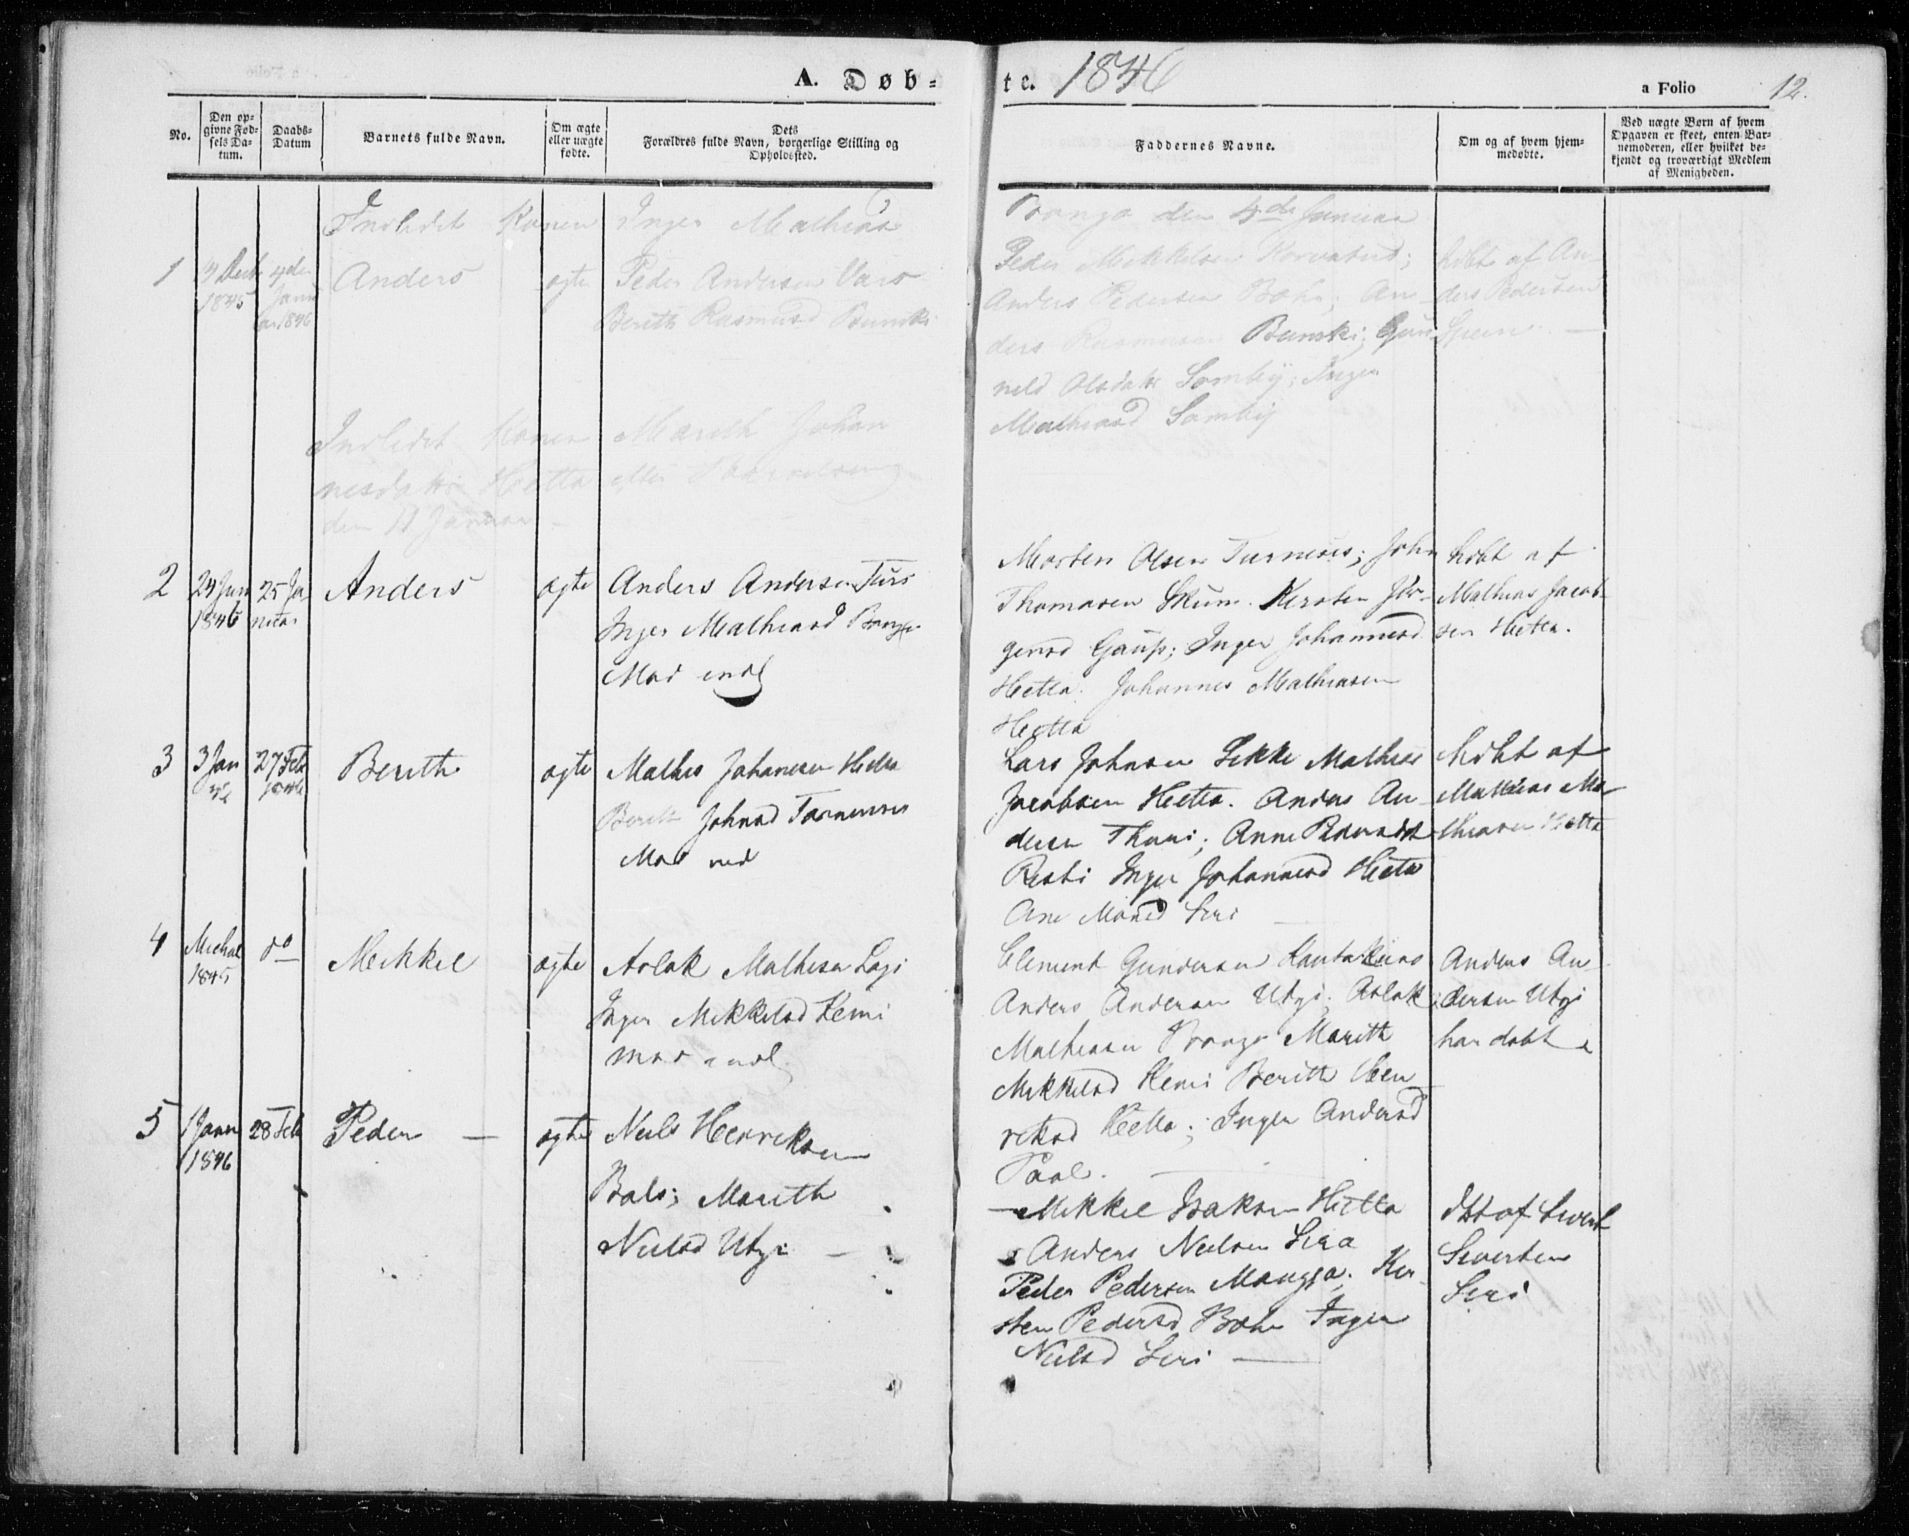 A. Døbte. 1846
a Folio 12.
No.
Den opgivne Fødsels Datum.
Daabs-Datum
Barnets fulde Navn.
Om ægte eller uægte fødte.
Dets Forældres fulde Navn, borgerlige Stilling og Opholdssted.
Faddernes Navne.
Om og af hvem hjemmedøbte.
Ved uægte Børn af hvem Opgaven er skeet, enten Barnemoderen, eller hvilket bekjendt og troværdigt Medlem af Menigheden.
Indledet Konen Inger Mathisd
den 4de Januar
1
1845
4de Janu ar 1846
Anders
ægte
Peder Andersen Vars
Berith Rasmusd Bunski
Peder Mikkelsen
Anders Pedersen Bæhr; An-
ders Rasmusen Bunski; Gun-
nild Olsdatr Somby; Inger
Mathisd Somby
hdbt af An-
ders Pedersen
Indledet Konen Marith Johan
nesdatr Hætta efter
den 11 Januar
2
24 Jan 1846
25 Ja-
nuar
Anders
ægte
Anders Andersen Turi
Inger Mathisd
Mod indl
Morten Olsen Turneus; John
Thomasen Skum. Kirsten Jør-
gensd Gaup; Inger Johannesd
Hætta. Johannes Mathisen
Hætta
hdbt af
Mathias Jacob-
sen Hætta.
3
3 Jan
27 Feb
Berith
ægte
Mathis Johanesen Hætta
Berith Johnsd Tornensis
Mod ind
Lars Johnsen Sikki Mathis
Jacobsen Hætta. Anders An-
dersen Thuri; Anne Pedersdt
Resti Inger Johannesd Hætta
Ane Monsd Siri
hdbt af
Mathias Ma-
thisen Hætta
4
Michal 1845
do
Mikkel
ægte
Aslak Mathisen Logi
Inger Mikkelsd Kemi
mod indl.
Clement Gundersen Kautokeino
Anders Andersen Utzi; Aslak
Mathisen Marith
Mikkelsd Kemi Berith Hen
riksd Hætta; Inger Andersd
Paal.
Anders An-
dersen Utzi
har døbt
5
1 Janu 1846
28 Feb
Peder —
ægte
Nils Henriksen
Bals; Marith
Nielsd Utzi —
Mikkel Isaksen Hætta
Anders Nielsen Sira
Peder Pedersen Maugga; Kir-
sten Pedersd Bæhr Inger
Nielsd Siri —
dbt af Sivert
Sivertsen
Siri